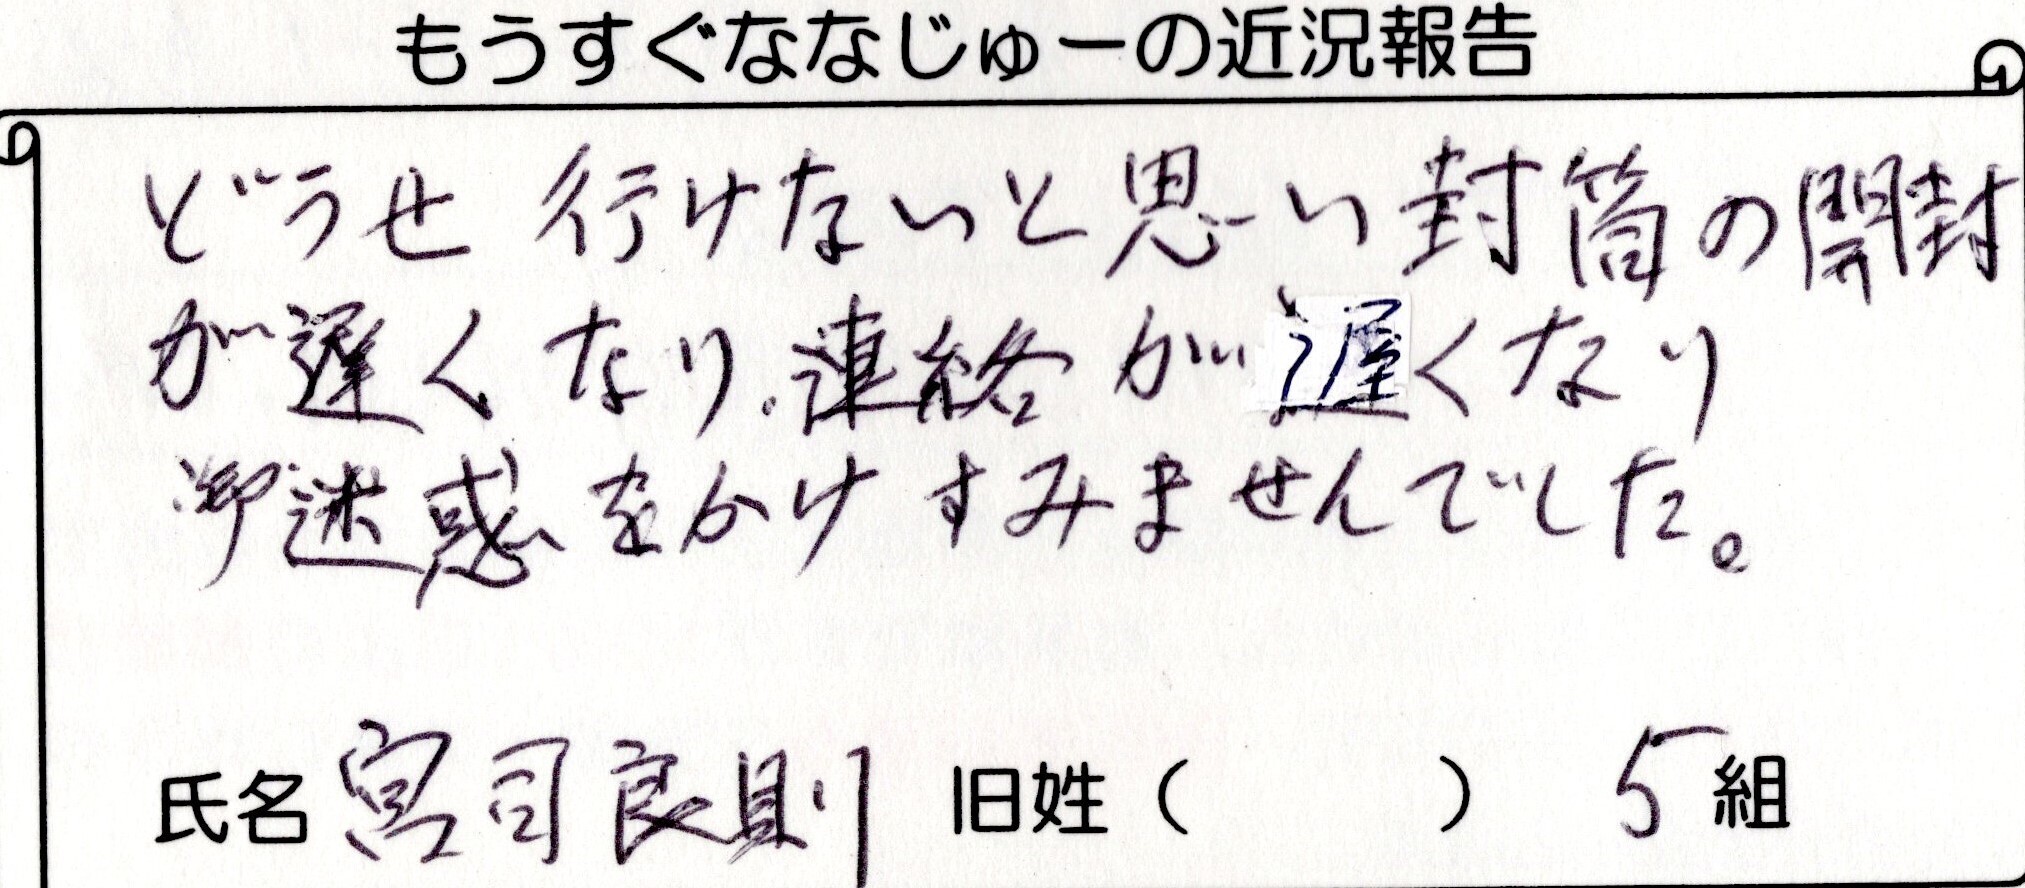 もうすぐななじゅーの近況報告
どうせ行けないと思い封筒の開封
が遅くなり、連絡が遅くなり
御迷惑をかけすみませんでした。
氏名 宮司良則 旧姓（ ） 5組